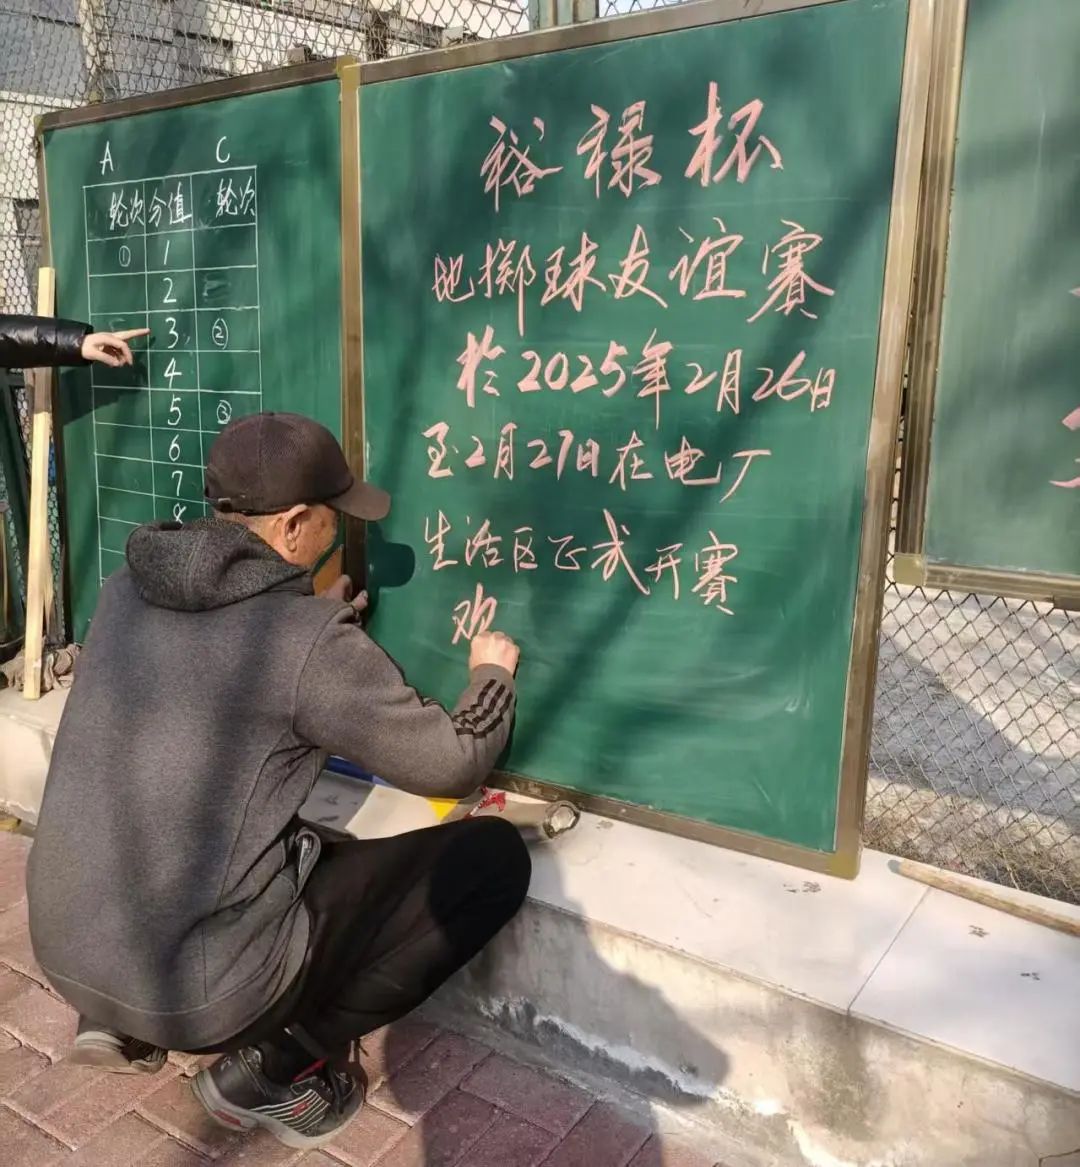 A C
轮次 分值 轮次
① 1
2
3 ②
4
5 ③
6
7
8
裕禄杯
地掷球友谊赛
於2025年2月26日
至2月27日在电厂
生活区正式开赛
欢